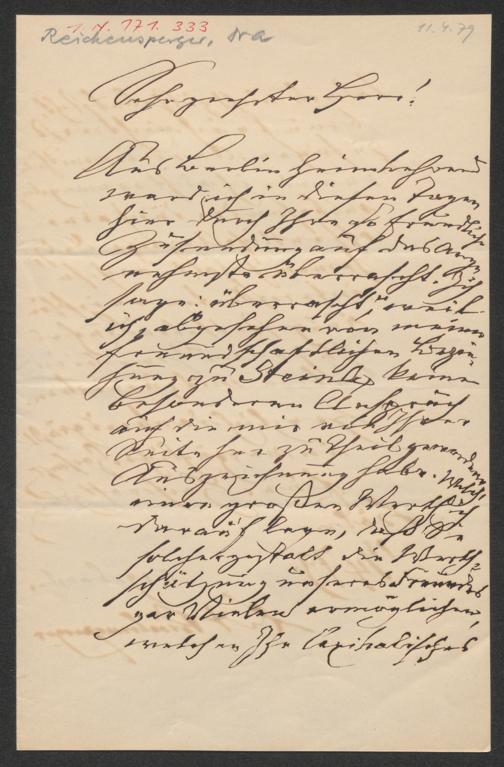 1. N. 171. 333
Reichensperger, Dr A
11.4.79
Sehr geehrter Herr!
Aus Berlin heimkehrend
ward ich in diesen Tagen
hier durch Ihre so freundliche
Zusendung auf das Ange-
nehmste überrascht. Ich
sage: „überrascht", weil
ich, abgesehen von meinen
freundschaftlichen Bezie-
hung zu Steinle, keine
besonderen Anspruch
auf die mir von Ihrer
Seite her zu Theil gewordene
Auszeichnung habe. Welch
einen großen Werth ich
darauf lege, daß Sie
solchergestalt die Werth-
schätzung unseres Freundes
gar Vielen ermöglichen,
welchen Ihr Capitalisches